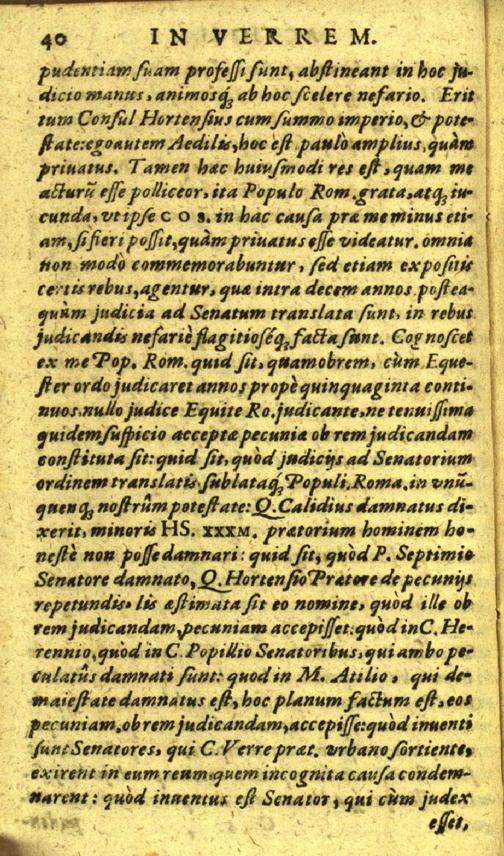 40 IN VERREM.
pudentiam suam professi sunt, abstineant in hoc ju-
dicio manus, animosq́; ab hoc scelere nefario. Erit
tum Consul Hortensius cum summo imperio, & pote-
state: ego autem Aedilis, hoc est paulò amplius, quàm
privatus. Tamen hæc huiusmodi res est, quam me
acturũ esse polliceor, ita Populo Rom. grata, atq; iu-
cunda, vt ipse COS. in hac causa præ me minus eti-
am, si fieri possit, quàm privatus esse videatur. omnia
non modò commemorabuntur, sed etiam expositis
certis rebus, agentur, quæ intra decem annos postea-
quàm judicia ad Senatum translata sunt, in rebus
judicandis nefariè flagitioséq́; facta sunt. Cognoscet
ex me Pop. Rom. quid sit, quamobrem, cùm Eque-
ster ordo judicaret annos propè quinquaginta conti-
nuos, nullo judice Equite Ro. judicante, ne tenuissima
quidem suspicio acceptæ pecuniæ ob rem judicandam
constituta sit: quid sit, quòd judicijs ad Senatorium
ordinem translatis, sublataq́; Populi, Roma. in vnũ-
quenq; nostrûm potestate: Q. Calidius damnatus di-
xerit, minoris HS. XXXM. prætorium hominem ho-
nestè non posse damnari: quid sit, quòd P. Septimio
Senatore damnato, Q. Hortensio Prætore de pecunijs
repetundis. lis æstimata sit eo nomine, quòd ille ob
rem judicandam, pecuniam accepisset. quòd in C. He-
rennio, quòd in C. Popillio Senatoribus, qui ambo pe-
culatûs damnati sunt: quod in M. Atilio, qui de
maiestate damnatus est, hoc planum factum est, eos
pecuniam, ob rem judicandam, accepisse: quòd inventi
sunt Senatores, qui C. Verre præt. vrbano sortiente,
exirent in eum reum quem incognita causa condem-
narent: quòd inuentus est Senator, qui cùm judex
esset,